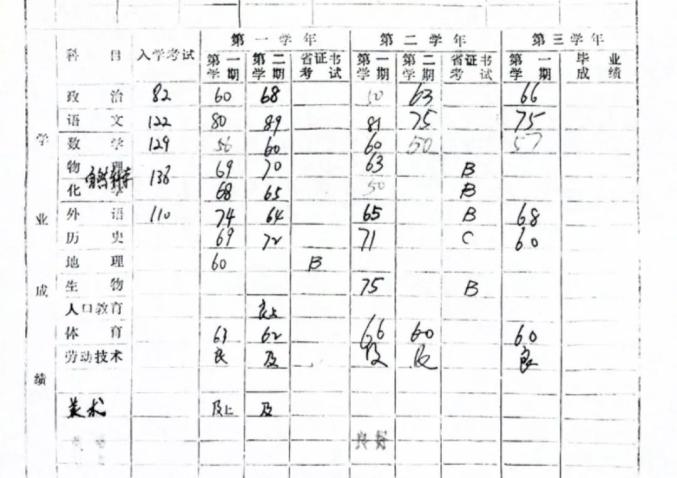 第一学年 第二学年 第三学年
科目 入学考试 第一学期 第二学期 省证书考试 第一学期 第二学期 省证书考试 第一学期 毕业成绩
学业成绩
政治 82 60 68 50 63 66
语文 122 80 89 81 75 75
数学 129 56 60 60 50 57
物理 138 69 70 63 B
化学 68 65 50 B
外语 110 74 64 65 B 68
历史 69 72 71 C 60
地理 60 B
生物 75 B
人口教育 良上
体育 63 62 66 60 60
劳动技术 良 及 及 及 良
美术 及上 及
良好